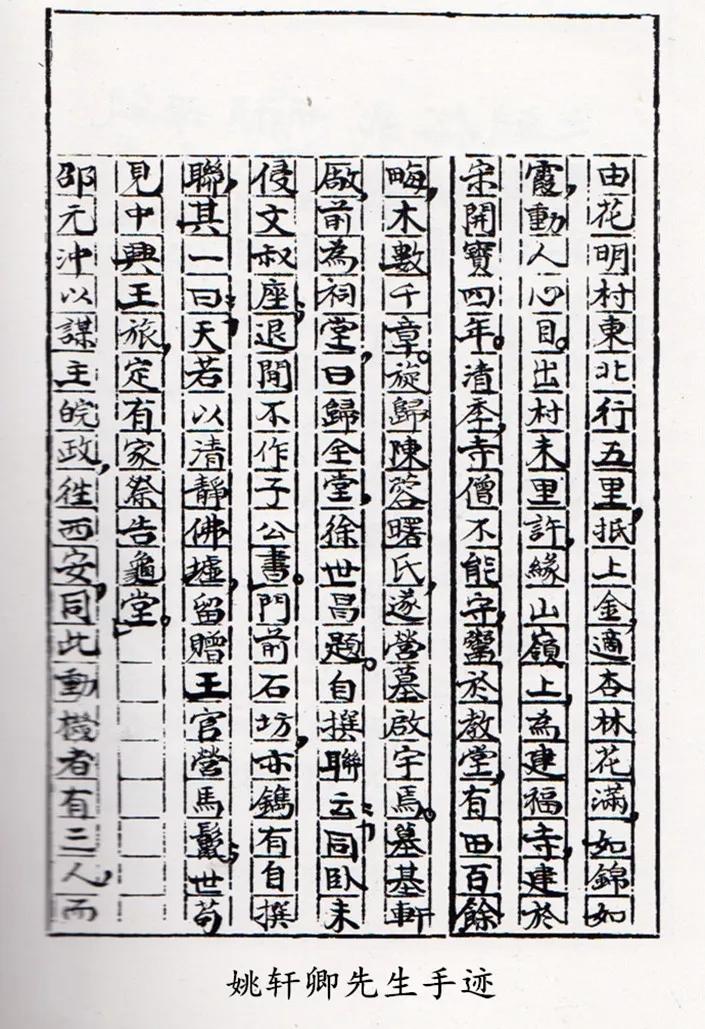 由花明村東北行五里，抵上金，適杏林花滿，如錦如
霞，動人心目。出村未里許，緣山嶺上，為建福寺，建於
宋開寶四年。清季，寺僧不能守，鬻於教堂，有田百餘
畮，木數千章。旋歸陳蓉曙氏，遂營墓啟宇焉。墓基軒
敞，前為祠堂，曰歸全堂，徐世昌題。自撰聯云：“同臥未
侵文叔座；退閒不作子公書。門前石坊，亦鐫有自撰
聯，其一曰：“天若以清靜佛墟，留贈王官營馬鬣；世苟
見中興王旅，定有家祭告龜堂。”
邵元沖以謀主皖政，往西安，同此動機者有三人，而
姚轩卿先生手迹